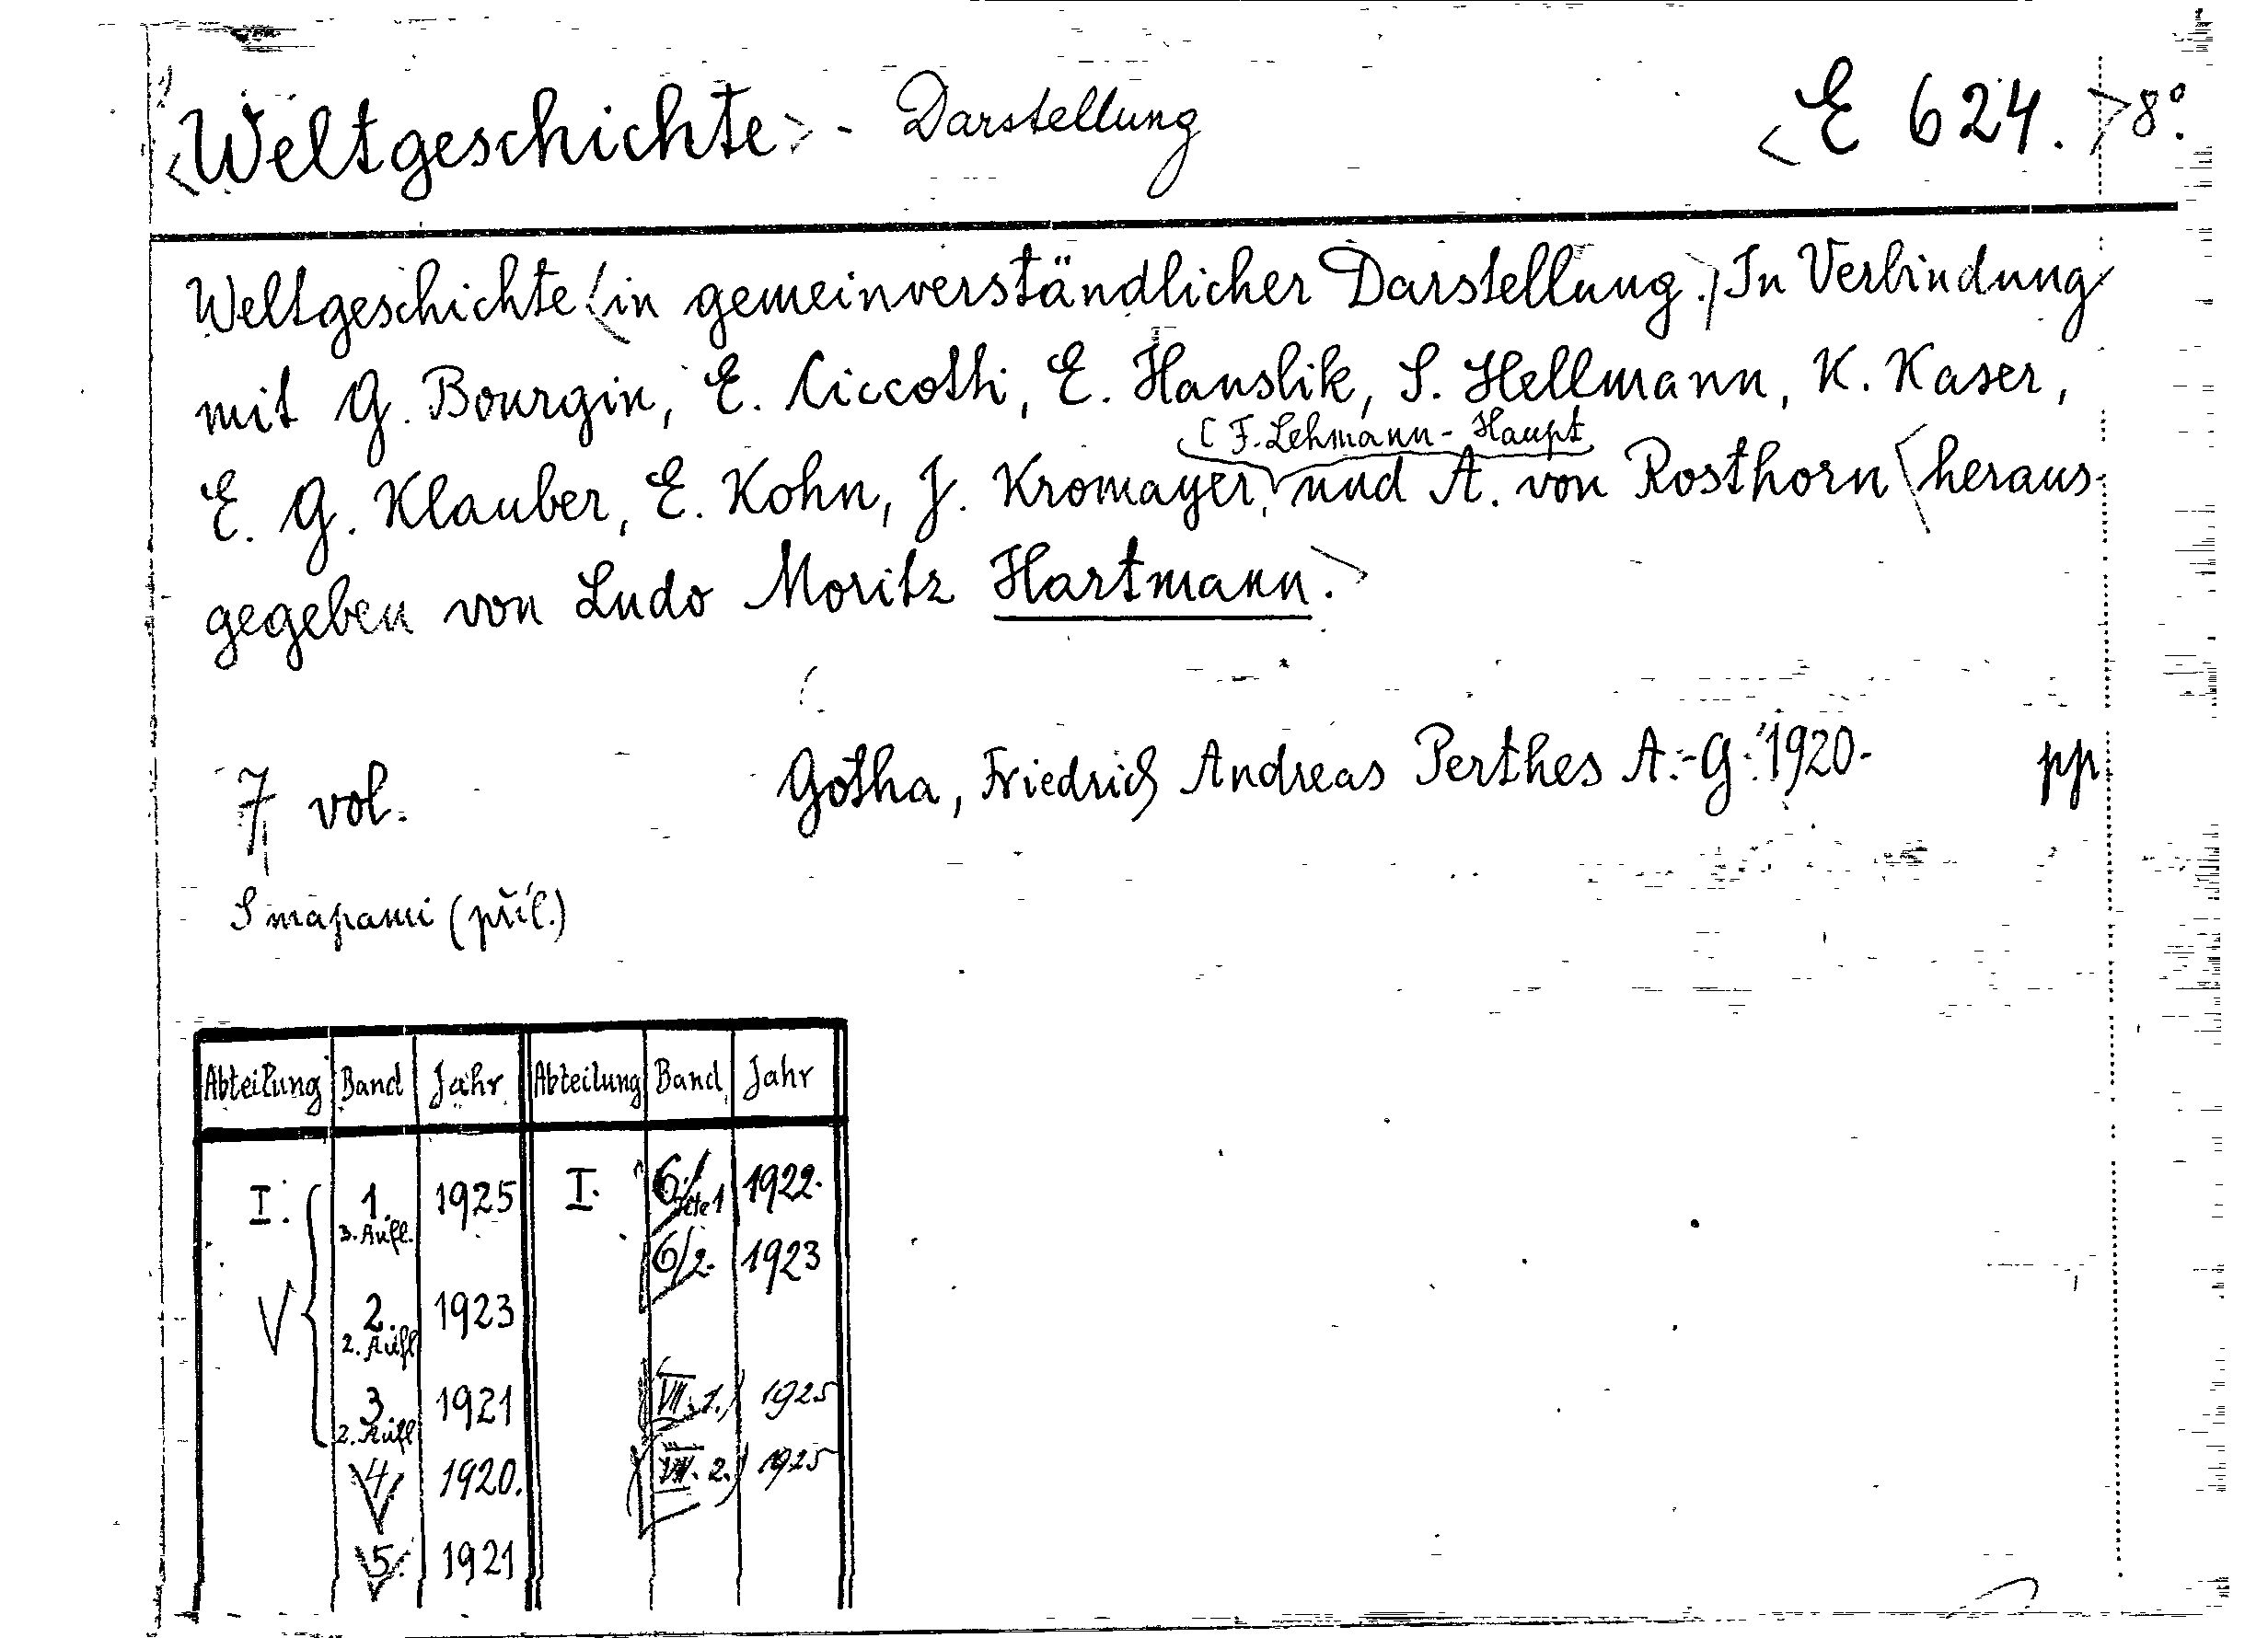 <Weltgeschichte> - Darstellung <E 624.> 8°.
Weltgeschichte <in gemeinverständlicher Darstellung.> In Verbindung
mit G. Bourgin, E. Ciccotti, E. Hanslik, S. Hellmann, K. Kaser,
C F. Lehmann-Haupt
E. G. Klauber, E. Kohn, J. Kromayer, und A. von Rosthorn <heraus-
gegeben von Ludo Moritz Hartmann.>
7 vol. Gotha, Friedrich Andreas Perthes A.-G. 1920- pp.
S mapami (příl.)
Abteilung Band Jahr Abteilung Band Jahr
I. 1. 1925 I. 6/1 1922.
3. Aufl.
6/2. 1923
V 2. 1923
2. Aufl
3. 1921 (VII. 1.) 1925
2. Aufl
4. 1920. (VII. 2.) 1925
5. 1921